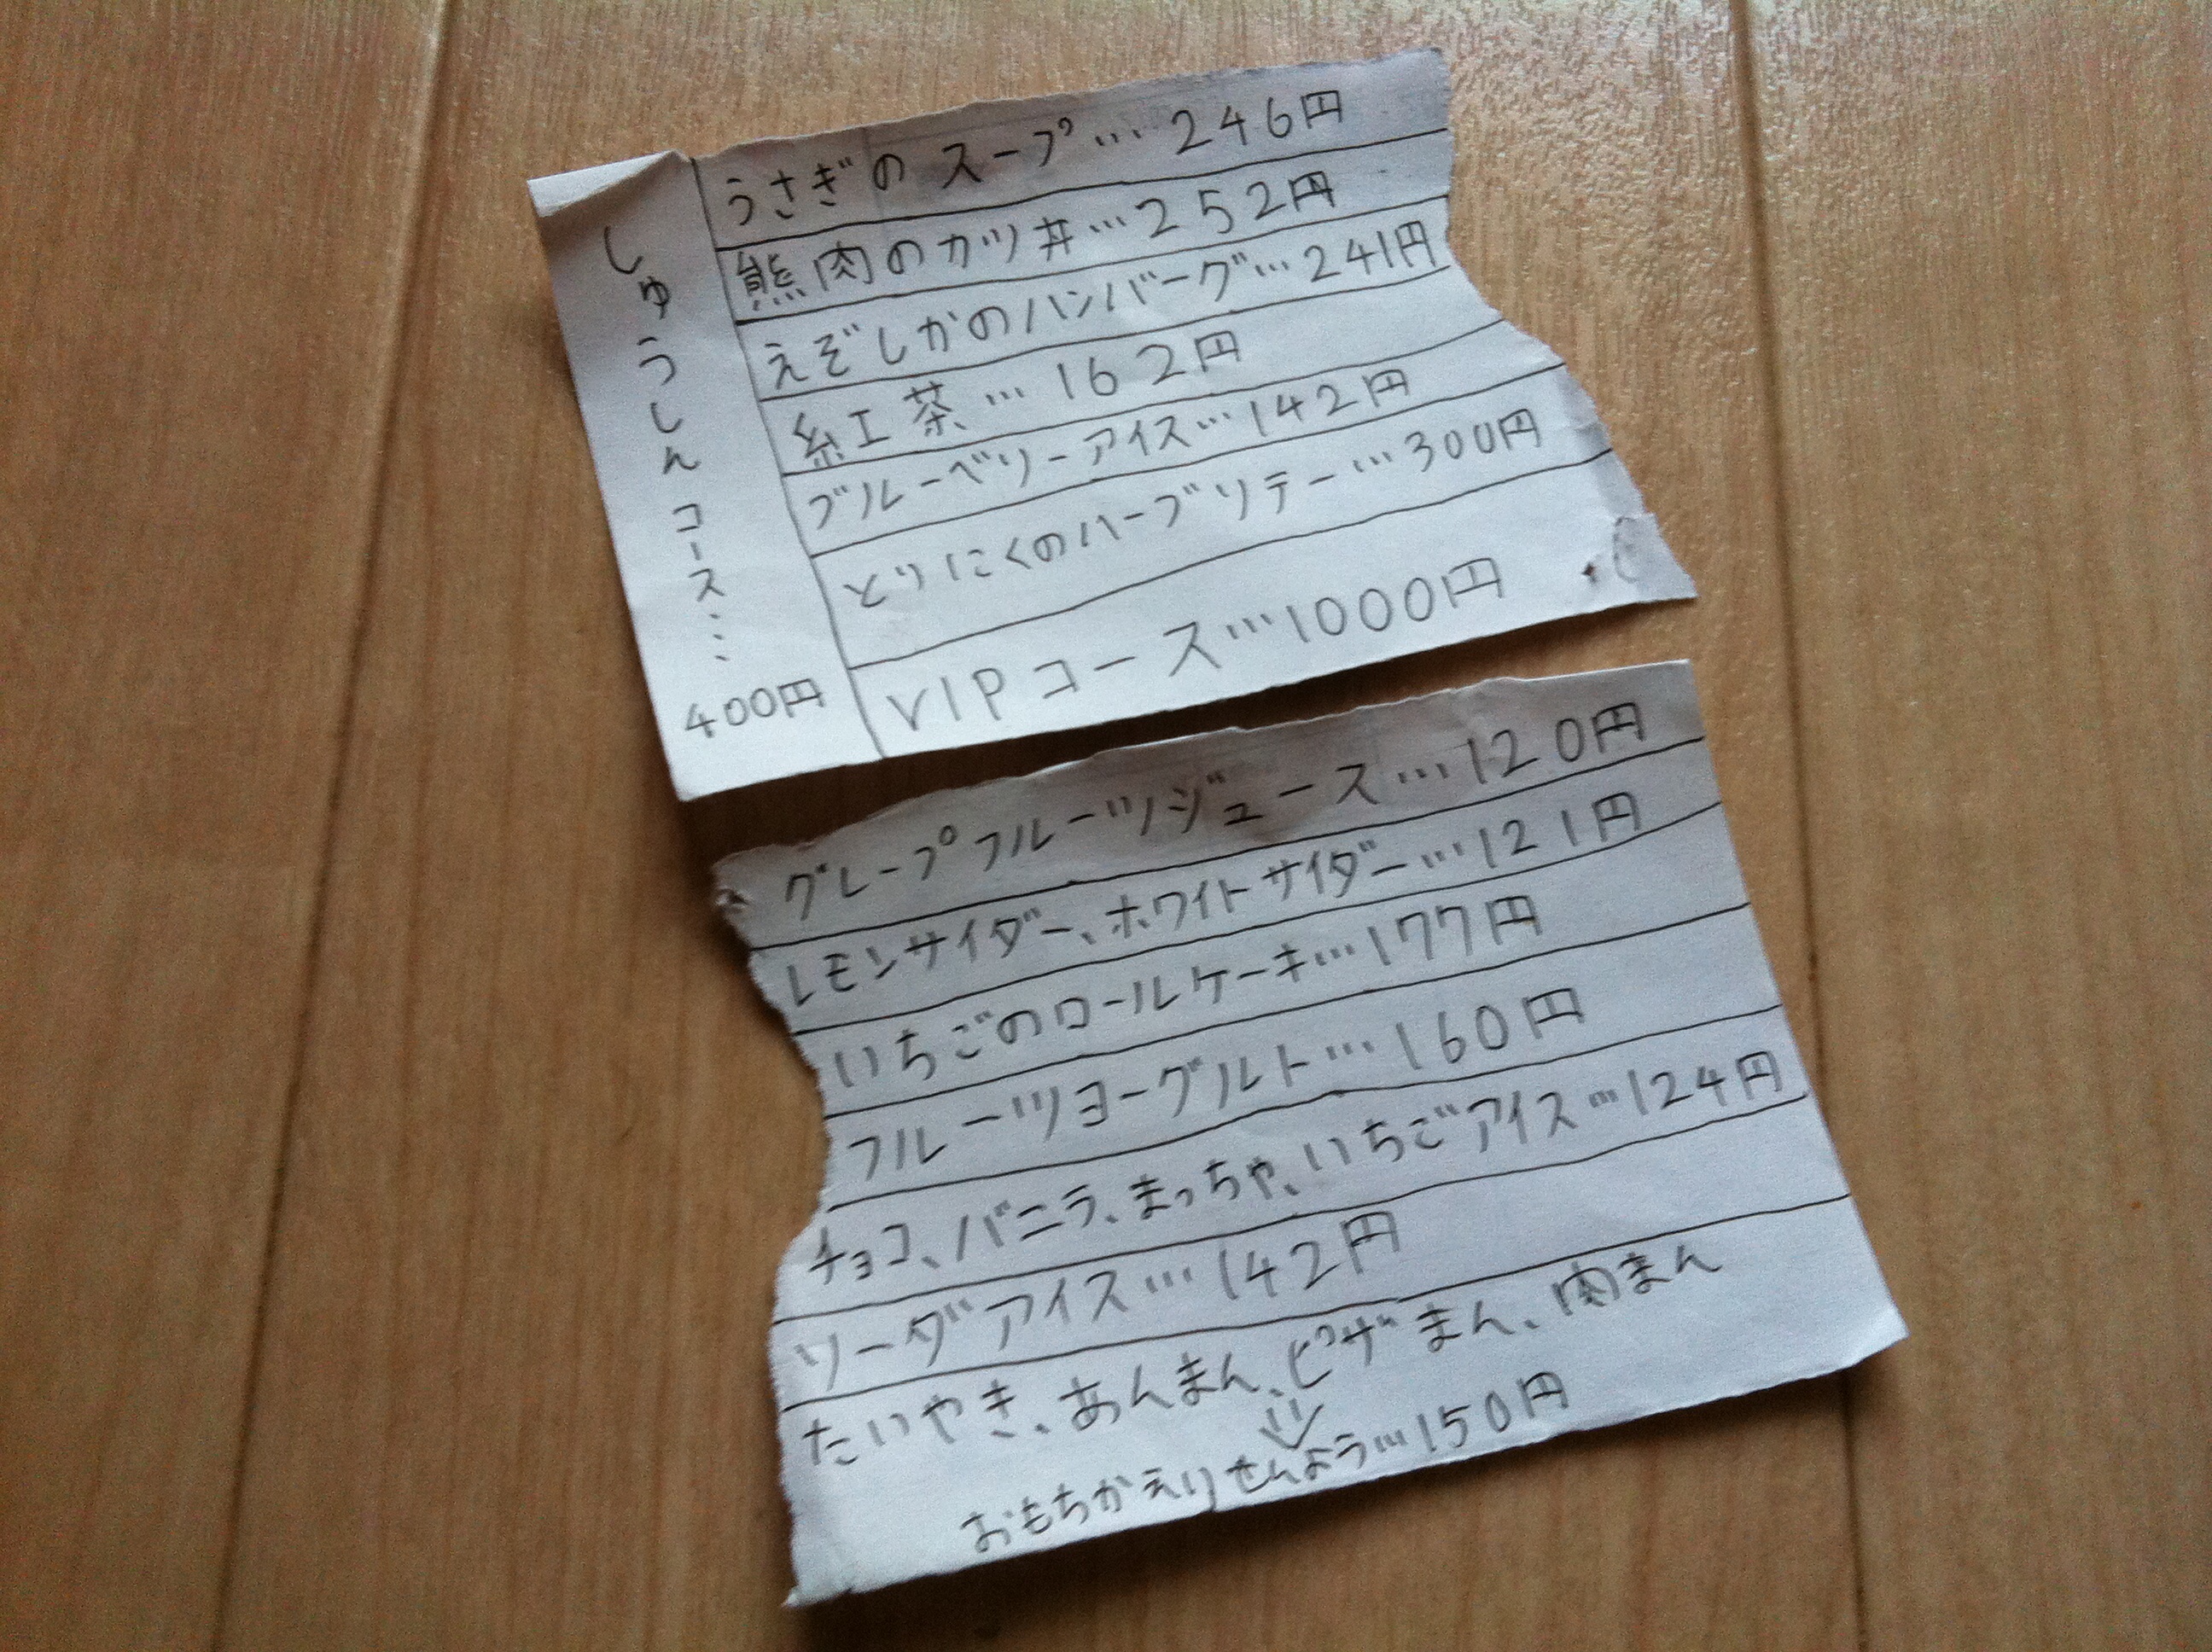 うさぎのスープ…246円
熊肉のカツ丼…252円
えぞしかのハンバーグ…241円
紅茶…162円
ブルーベリーアイス…142円
とりにくのハーブソテー…300円
VIPコース…1000円
しゅうしんコース……
400円
グレープフルーツジュース…120円
レモンサイダー、ホワイトサイダー…121円
いちごのロールケーキ…177円
フルーツヨーグルト…160円
チョコ、バニラ、まっちゃ、いちごアイス…124円
ソーダアイス…142円
たいやき、あんまん、ピザまん、肉まん
おもちかえりせんよう…150円